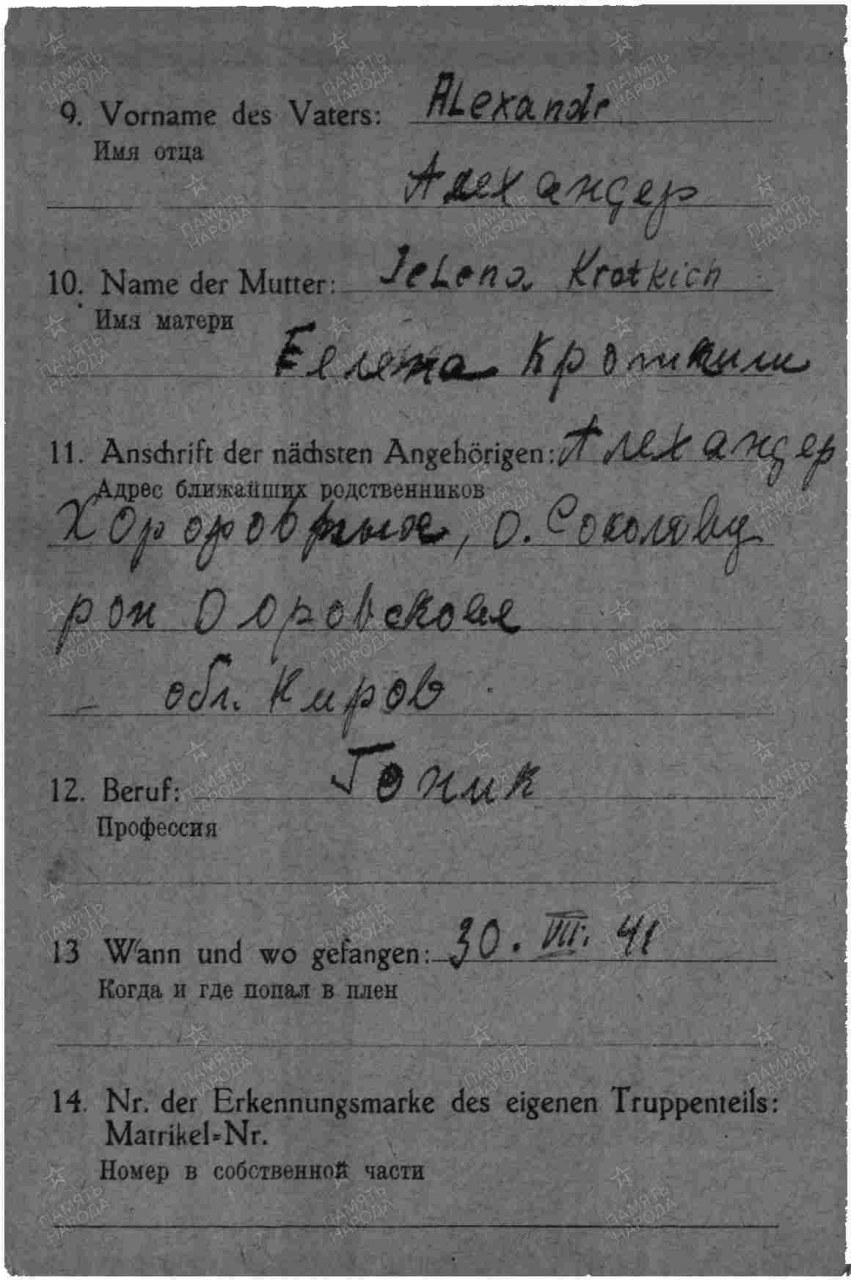 9. Vorname des Vaters: Alexandr
Имя отца
Александер
10. Name der Mutter: Jelena Krotkich
Имя матери
Еелена Кроткиш
11. Anschrift der nächsten Angehörigen: Александер
Адрес ближайших родственников
о. Соколяву
рон
обл. Киров
12. Beruf: Гоник
Профессия
13 Wann und wo gefangen: 30. VII. 41
Когда и где попал в плен
14. Nr. der Erkennungsmarke des eigenen Truppenteils:
Matrikel=Nr.
Номер в собственной части
ПАМЯТЬ
НАРОДА